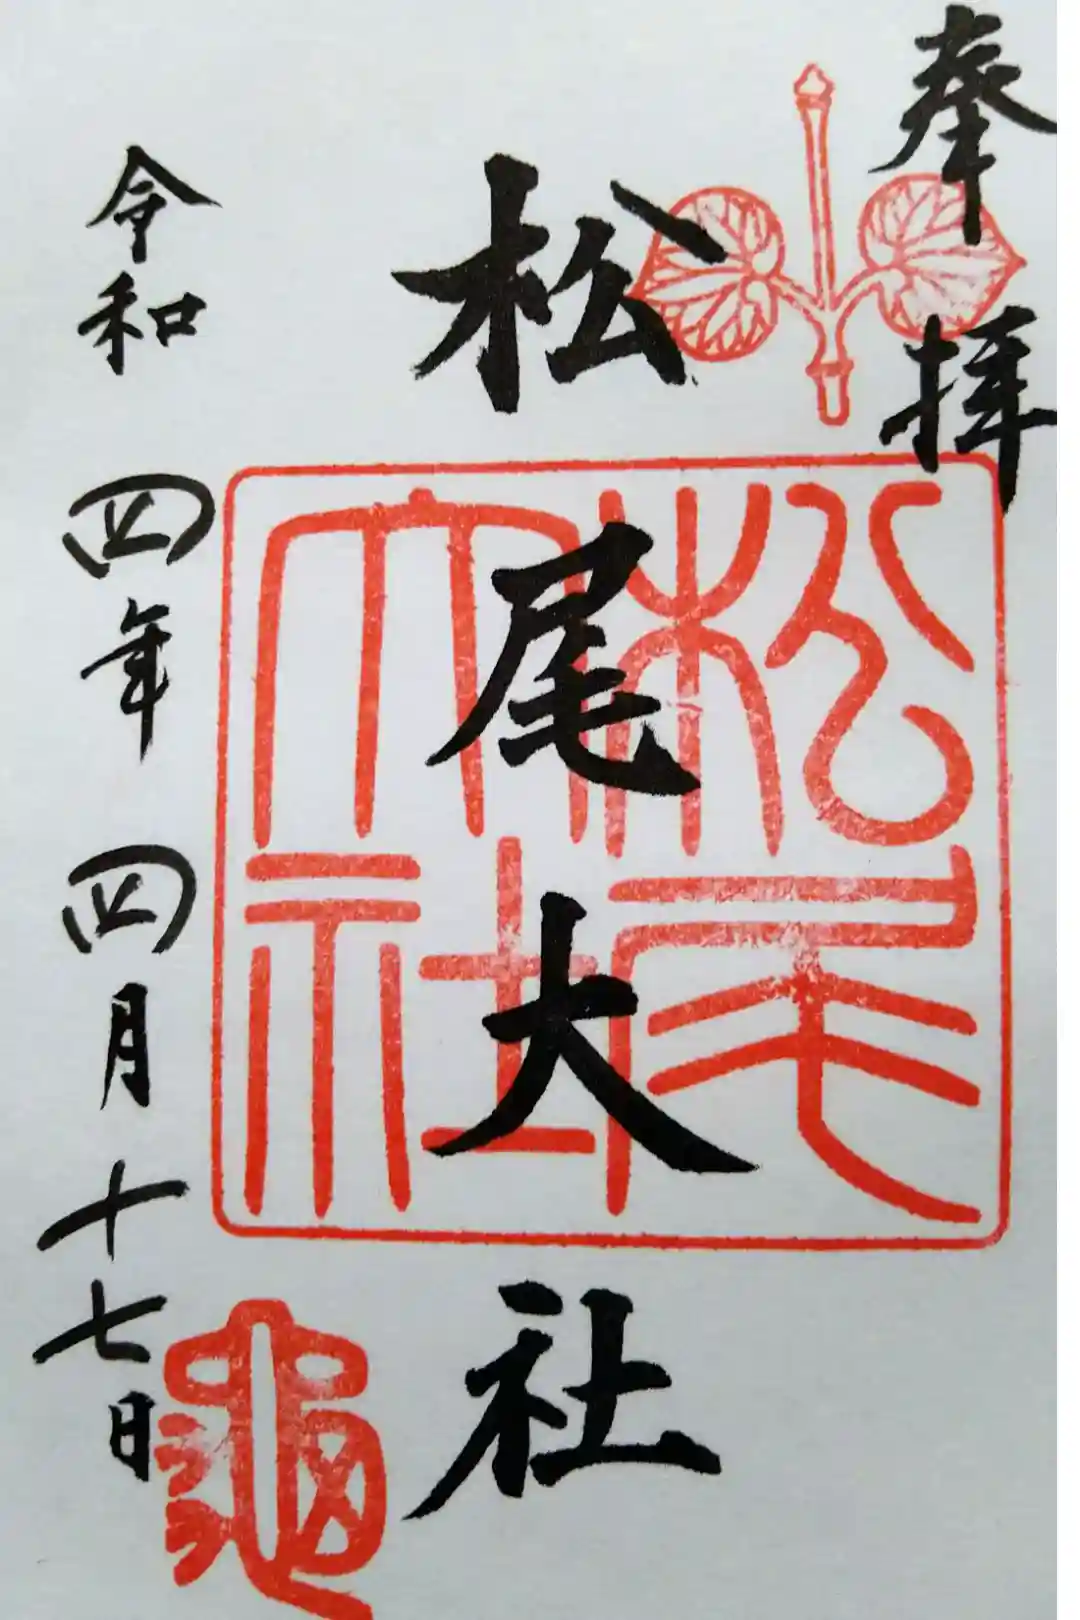 奉拝
松尾大社
松尾大社
令和四年四月十七日
亀